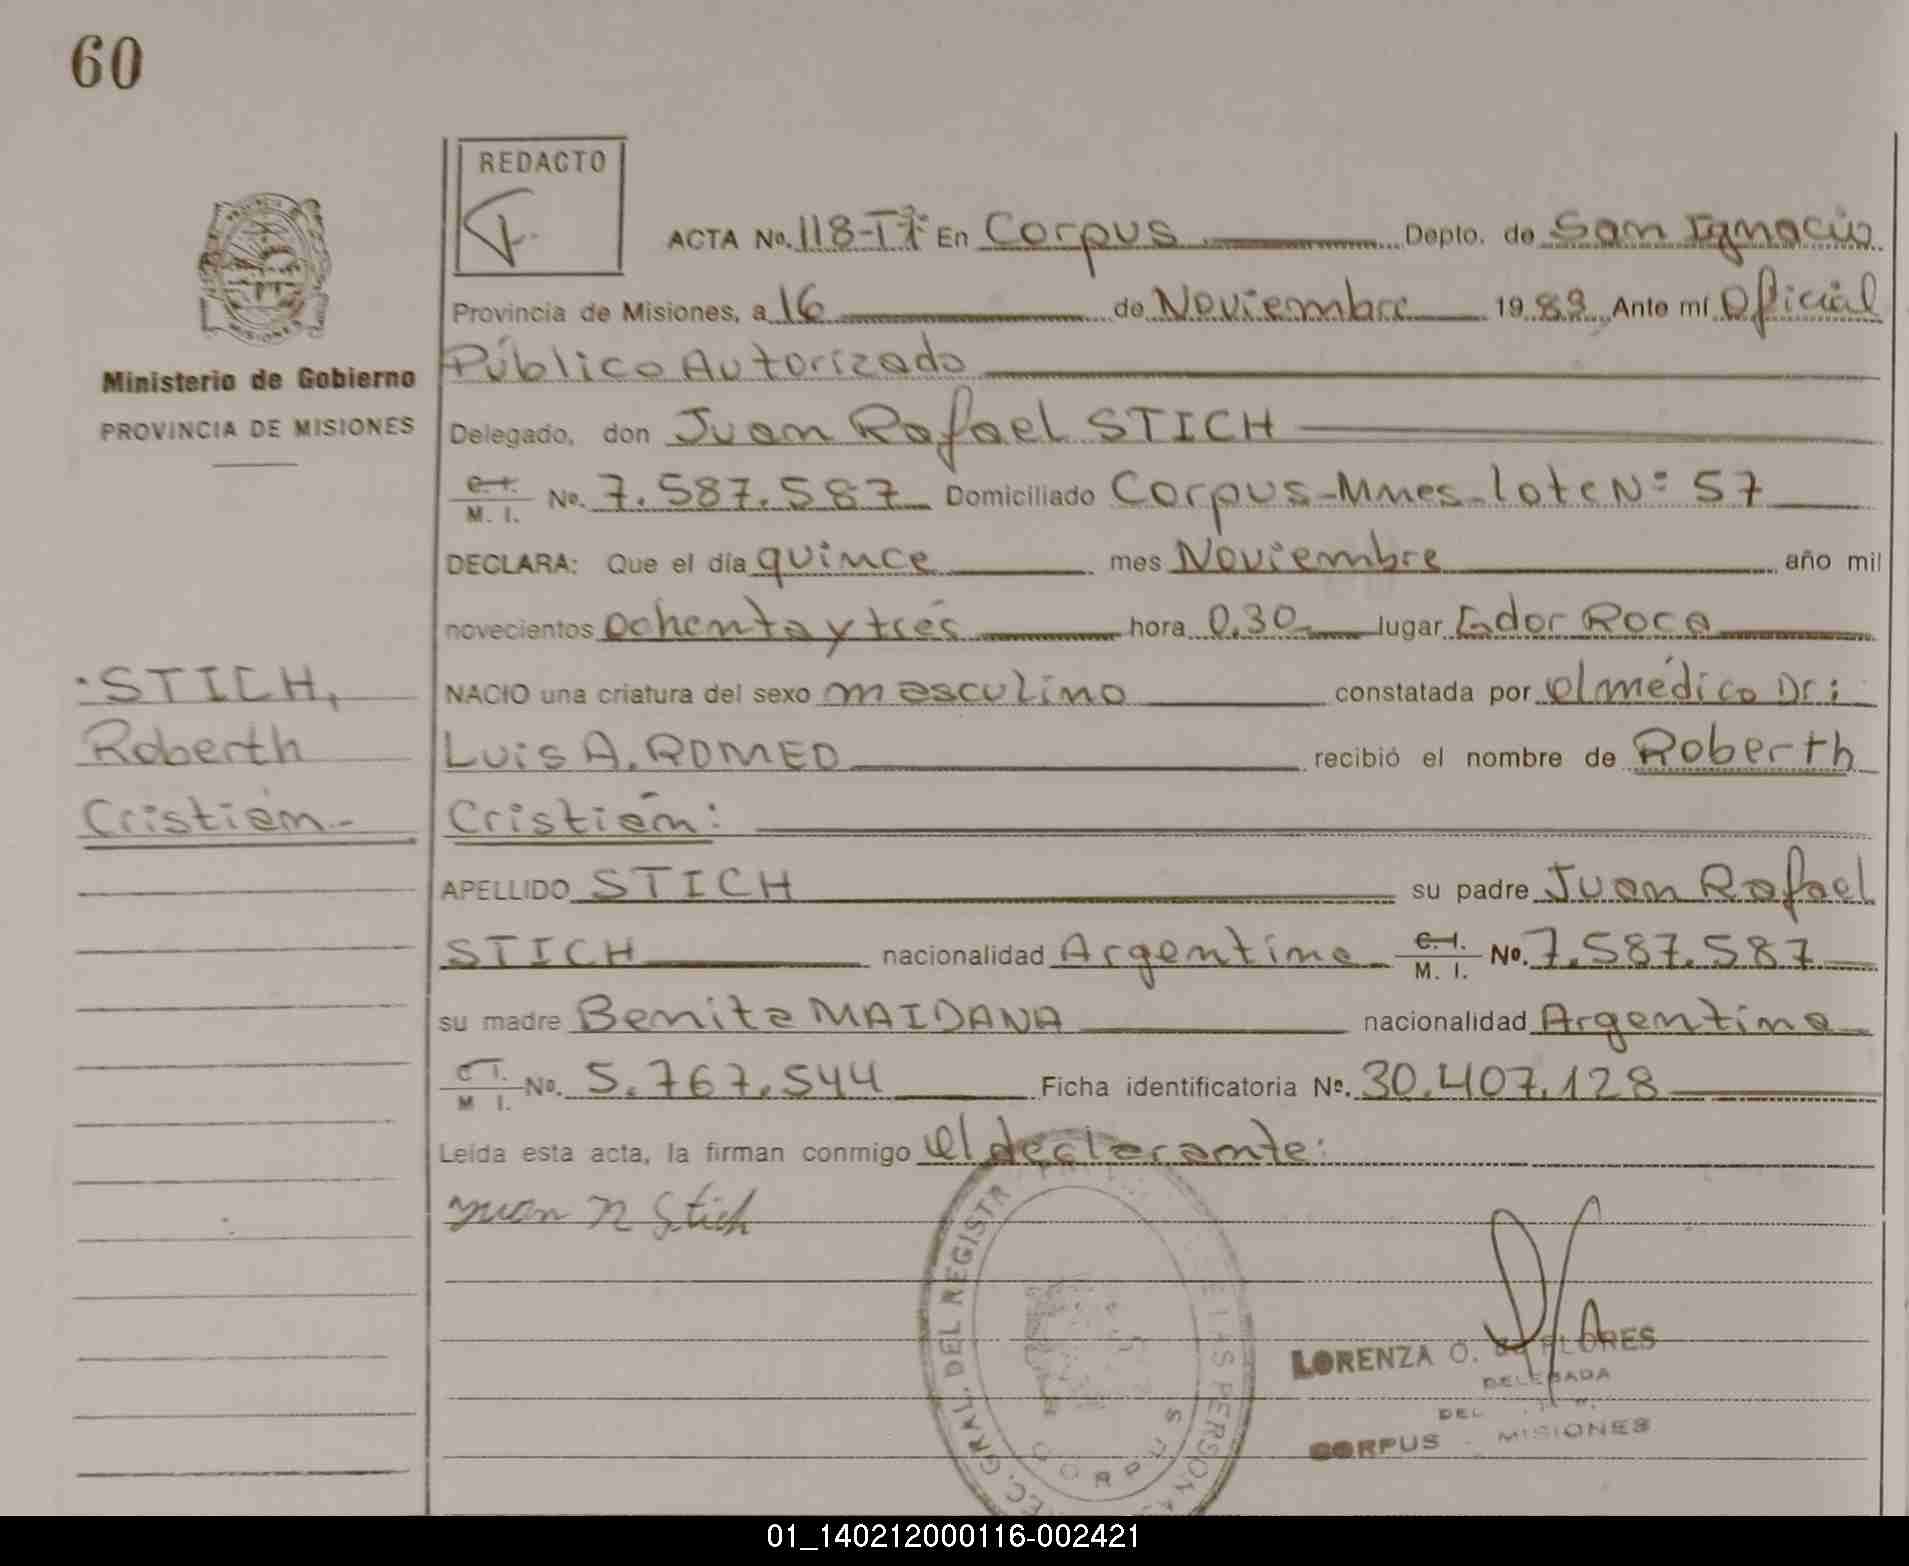 60
REDACTO
ACTA No. 118-Tº: En Corpus Depto. de San Ignacio
Provincia de Misiones, a 16 de Noviembre 1983 Ante mí Oficial
Público Autorizado
Ministerio de Gobierno
PROVINCIA DE MISIONES
Delegado, don Juan Rafael STICH
C.I. M. I. No. 7.587.587 Domiciliado Corpus-Mnes-lote Nº 57
DECLARA: Que el día quince mes Noviembre año mil
novecientos ochenta y tres hora 0,30 lugar Gdor Roca
NACIO una criatura del sexo masculino constatada por el médico Dr:
Luis A. ROMEO recibió el nombre de Roberth
Cristián:
STICH,
Roberth
Cristián.-
APELLIDO STICH su padre Juan Rafael
STICH nacionalidad Argentina C.I. M. I. No. 7.587.587
su madre Benita MAIDANA nacionalidad Argentina
C I. M I. No. 5.767.544 Ficha identificatoria Nº. 30.407.128
Leída esta acta, la firman conmigo el declarante:
Juan R Stich
GRAL. DEL REGISTR
LAS PERSONA
CORPUS
LORENZA O. FLORES
DELEGADA
DEL
CORPUS - MISIONES
01_140212000116-002421